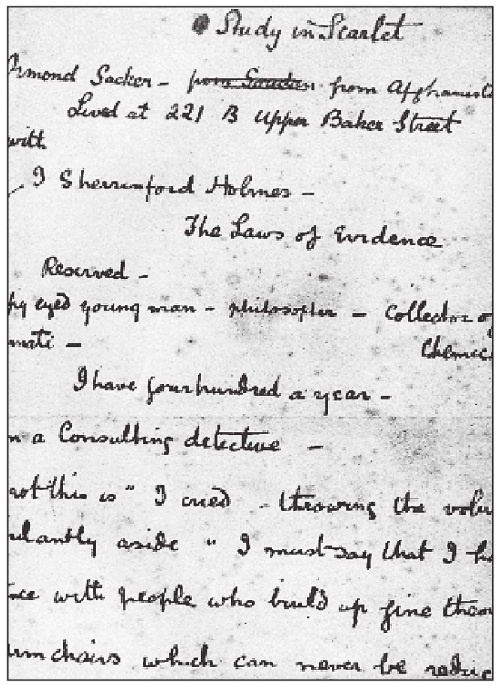 Study in Scarlet
rmond Sacker - from Soudan from Afghanista
Lived at 221 B Upper Baker Street
with
I Sherrinford Holmes -
The Laws of Evidence
Reserved -
py eyed young man - philosopher - Collector of
mati - Chemica
I have four hundred a year -
m a Consulting detective -
rot this is" I cried - throwing the volu
ulantly aside " I must say that I ha
nce with people who build up fine theor
rmchairs which can never be reduc